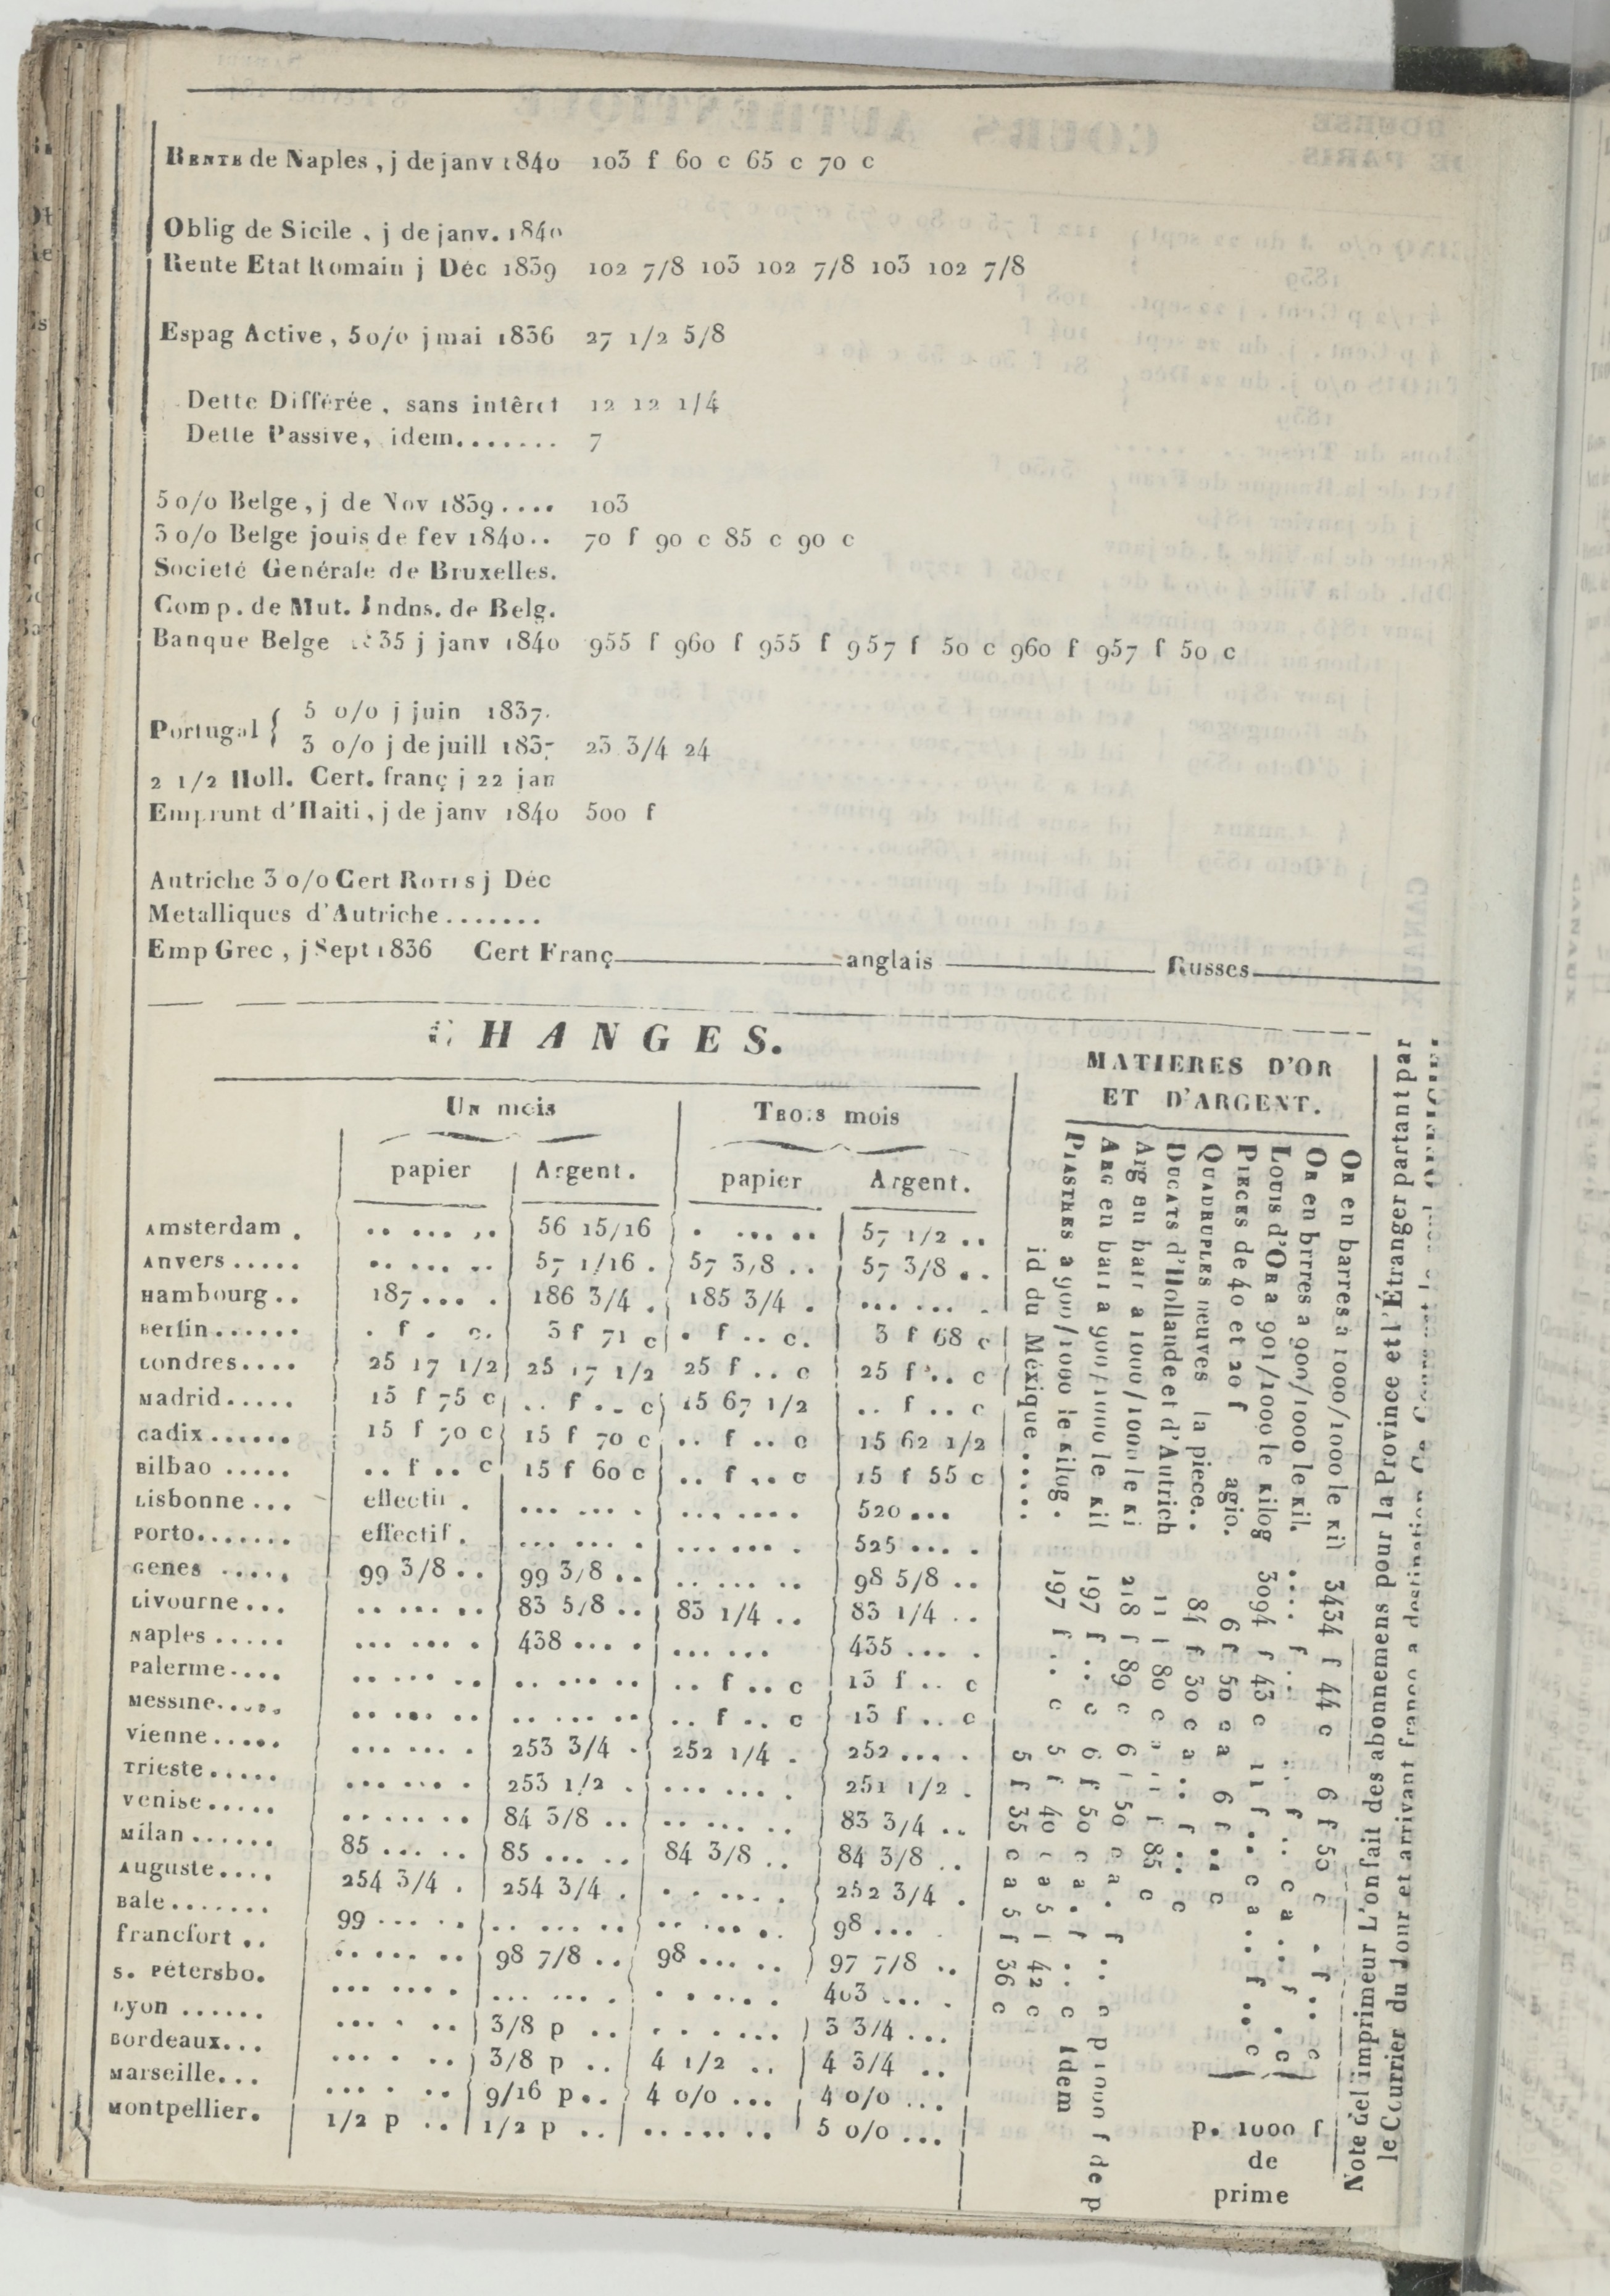 RENTE de Naples, j de janv 1840 103 f 60 c 65 c 70 c
Oblig de Sicile, j de janv. 1840
Rente Etat Romain j Déc 1839 102 7/8 103 102 7/8 103 102 7/8
Espag Active, 5 o/o j mai 1836 27 1/2 5/8
Dette Différée, sans intêret 12 12 1/4
Dette Passive, idem....... 7
5 o/o Belge, j de Nov 1839.... 103
3 o/o Belge jouis de fev 1840.. 70 f 90 c 85 c 90 c
Societé Genérale de Bruxelles.
Comp. de Mut. Indns. de Belg.
Banque Belge 1835 j janv 1840 955 f 960 f 955 f 957 f 50 c 960 f 957 f 50 c
Portugal { 5 o/o j juin 1837.
3 o/o j de juill 1837 23 3/4 24
2 1/2 Holl. Cert. franç j 22 jan
Emprunt d'Haiti, j de janv 1840 500 f
Autriche 3 o/o Cert Roths j Déc
Metalliques d'Autriche.......
Emp Grec, j Sept 1836 Cert Franç anglais Russes
CHANGES.
UN mois TROIS mois
papier Argent. papier Argent.
Amsterdam . .. ... .. 56 15/16 . ... .. 57 1/2 ..
Anvers ..... .. ... .. 57 1/16 . 57 3/8 .. 57 3/8 ..
Hambourg .. 187 ... . 186 3/4 . 185 3/4 . ... ... .
Berlin ...... . f . c. 3 f 71 c . f .. c. 3 f 68 c
Londres.... 25 17 1/2 25 17 1/2 25 f .. c 25 f .. c
Madrid..... 15 f 75 c .. f .. c 15 67 1/2 .. f .. c
Cadix ...... 15 f 70 c 15 f 70 c .. f .. c 15 62 1/2
Bilbao ..... .. f .. c 15 f 60 c .. f .. c 15 f 55 c
Lisbonne ... effectif . ... ... . ... .... 520 ...
Porto....... effectif . ... ... . ... ... . 525 ... .
Genes ..... 99 3/8 .. 99 3/8 .. .. ... .. 98 5/8 ..
Livourne ... .. ... .. 83 5/8 .. 83 1/4 .. 83 1/4 ..
Naples ..... ... ... . 438 ... . ... ... 435 ... .
Palerme.... .. ... .. .. ... .. .. f .. c 13 f .. c
Messine..... .. ... .. .. ... .. .. f .. c 13 f .. c
Vienne ..... ... ... . 253 3/4 . 252 1/4 . 252 ... .
Trieste ..... ... ... . 253 1/2 . ... ... . 251 1/2 .
Venise ..... .. ... .. 84 3/8 .. .. ... .. 83 3/4 ..
Milan ...... 85 ... .. 85 ... .. 84 3/8 .. 84 3/8 ..
Auguste.... 254 3/4 . 254 3/4 . . . ... . 252 3/4 .
Bale ....... 99 ... .. .. ... .. .. ... . 98 ... .
francfort .. .. ... .. 98 7/8 .. 98 ... .. 97 7/8 ..
S. Pétersbo. ... ... . ... ... . . . ... . 403 ... .
Lyon ...... ... . .. 3/8 p .. . . . ... 3 3/4 ...
Bordeaux... ... . .. 3/8 p .. 4 1/2 .. 4 3/4 ..
Marseille... ... . .. 9/16 p .. 4 o/o ... 4 o/o ...
Montpellier. 1/2 p .. 1/2 p .. .. ... .. 5 o/o ...
MATIERES D'OR
ET D'ARGENT.
OR en barres à 1000/1000 le kil 3434 f 44 c 6 f 50 c . f .. c
OR en brrres a 900/1000 le kil. .... f .. .. f .. c a .. f . c
LOUIS d'OR a 901/1000 le kilog 3094 f 43 c 11 f .. c a .. f .. c
PIECES de 40 et 20 f agio. 6 f 50 c a 6 f .. c
QUADRUPLES neuves la piece.. 84 f 30 c a .. f .. c
DUCATS d'Hollande et d'Autrich 11 f 80 c a 11 f 85 c
Arg en barr a 1000/1000 le ki 218 f 89 c 6 f 50 c a . f .. c p 1000 f de p
ARG en barr a 900/1000 le kil 197 f .. c 6 f 50 c a . f .. c Idem
PIASTRES a 900/1000 le kilog . 197 f .. c 5 f 40 c a 5 f 42 c
id du Méxique ..... 5 f 35 c a 5 f 36 c
p. 1000 f
de
prime
Note del imprimeur L'on fait des abonnemens pour la Province et l'Étranger partant par
le Courrier du Jour et arrivant franco a destination